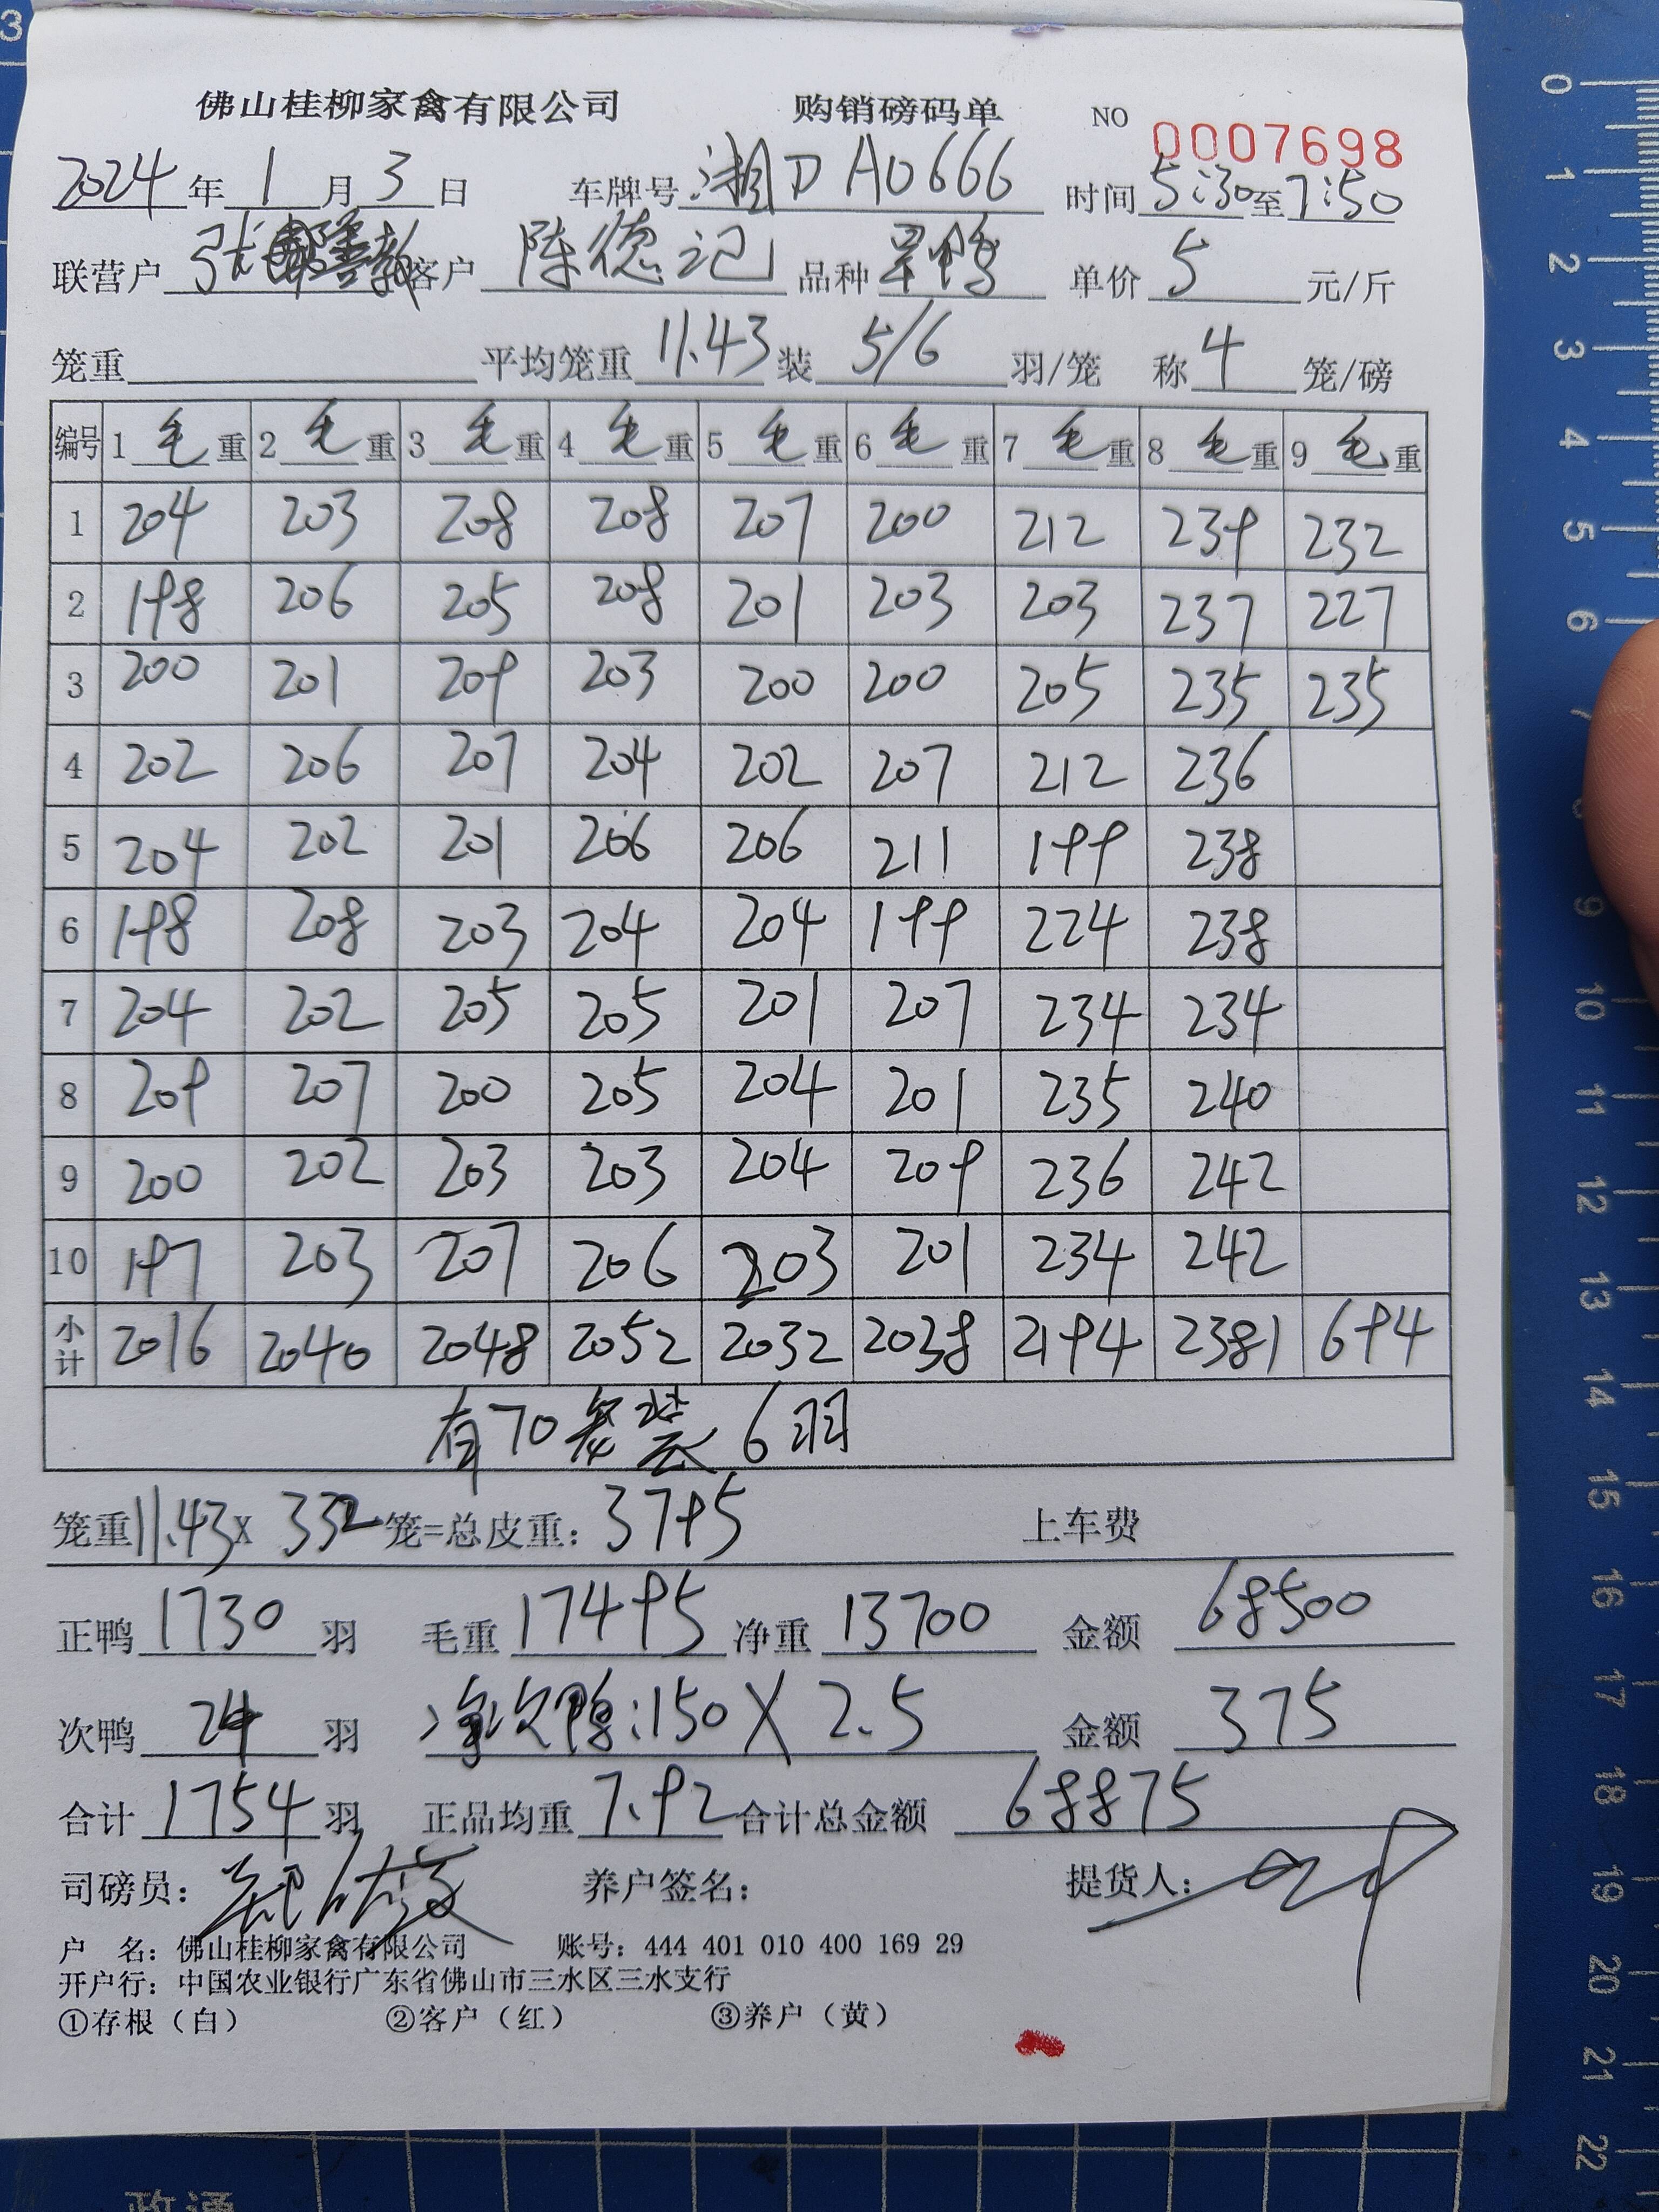 佛山桂柳家禽有限公司 购销磅码单 NO 0007698
2024年1月3日 车牌号 湘DA0666 时间5:30至7:50
联营户 张 客户 陈德记 品种 旱鸭 单价 5 元/斤
笼重 平均笼重 11.43 装 5/6 羽/笼 称 4 笼/磅
编号 1 毛重 2 毛重 3 毛重 4 毛重 5 毛重 6 毛重 7 毛重 8 毛重 9 毛重
1 204 203 208 208 207 200 212 239 232
2 198 206 205 208 201 203 203 237 227
3 200 201 209 203 200 200 205 235 235
4 202 206 207 204 202 207 212 236
5 204 202 201 206 206 211 199 238
6 198 208 203 204 204 199 224 238
7 204 202 205 205 201 207 234 234
8 209 207 200 205 204 201 235 240
9 200 202 203 203 204 209 236 242
10 197 203 207 206 203 201 234 242
小计 2016 2040 2048 2052 2032 2038 2194 2381 694
有70笼装6羽
笼重11.43X 332笼=总皮重: 3795 上车费
正鸭 1730 羽 毛重 17495 净重 13700 金额 68500
次鸭 24 羽 净次鸭:150X2.5 金额 375
合计 1754 羽 正品均重 7.92 合计总金额 68875
司磅员: 养户签名: 提货人:
户 名: 佛山桂柳家禽有限公司 账号: 444 401 010 400 169 29
开户行: 中国农业银行广东省佛山市三水区三水支行
①存根（白） ②客户（红） ③养户（黄）
3
0
1
2
3
4
5
6
7
9
10
11
12
13
14
15
16
17
18
19
20
21
22
政通